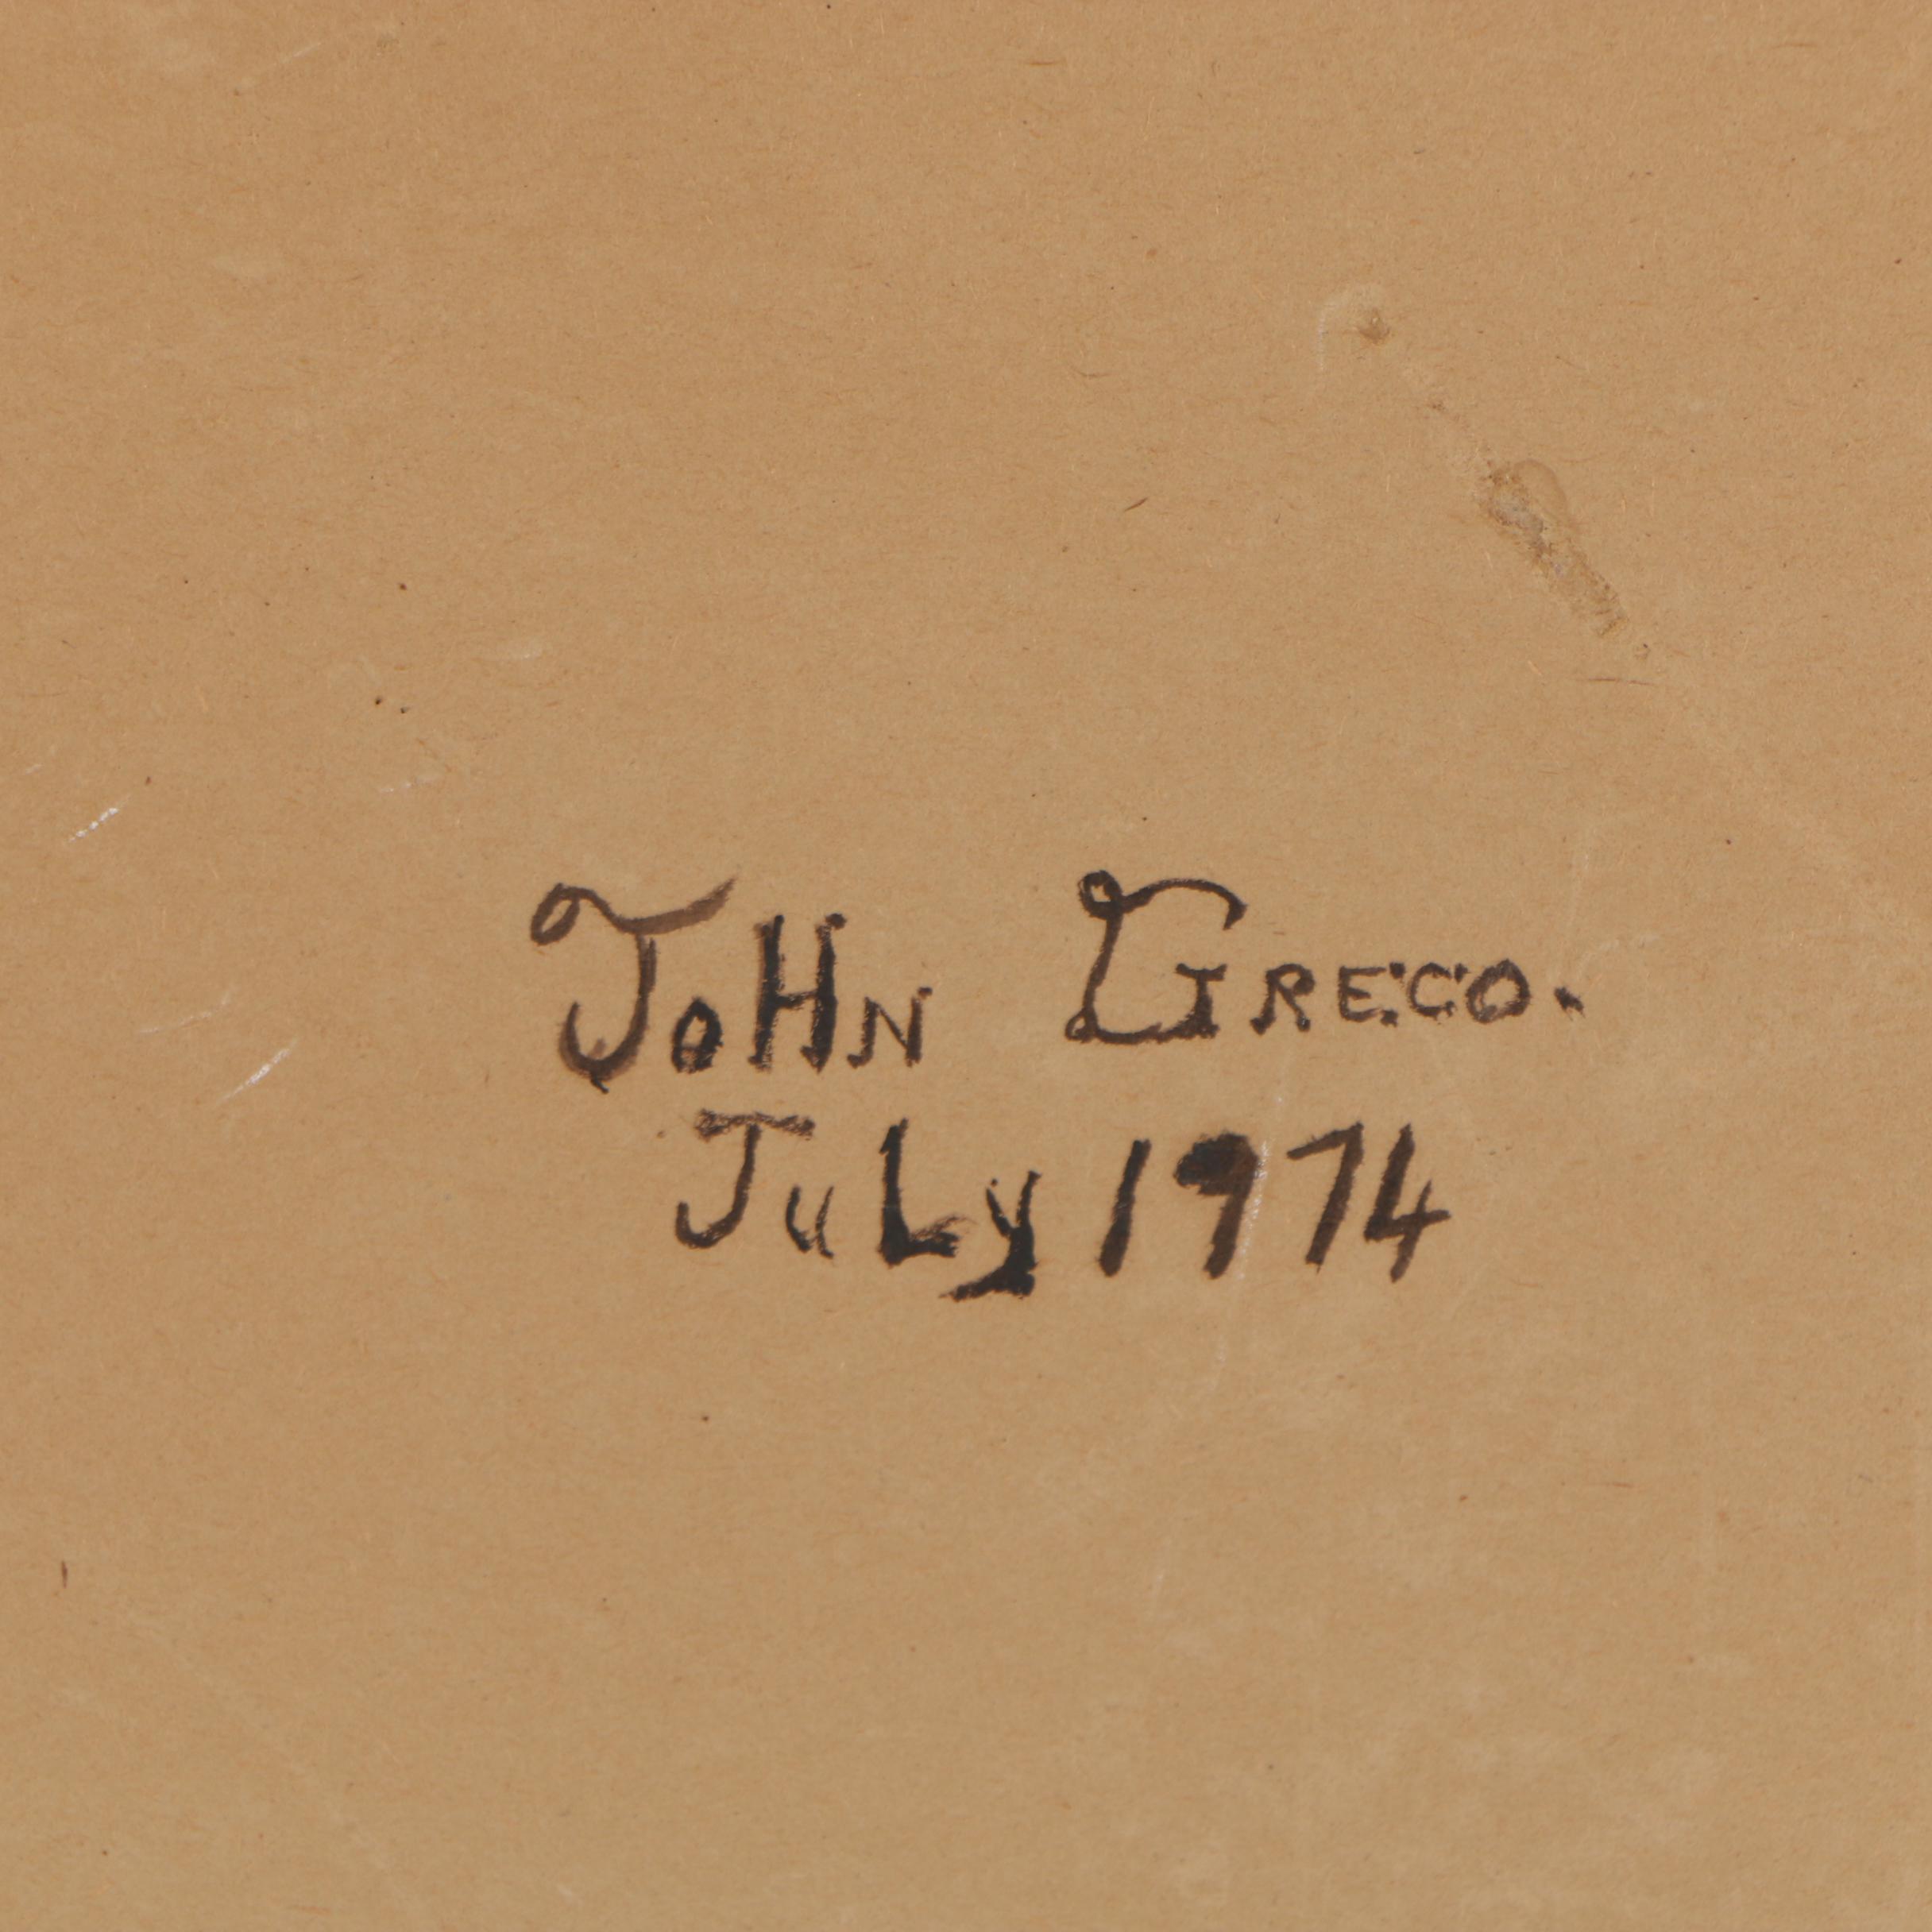 JoHN GRECO.
JuLy 1974